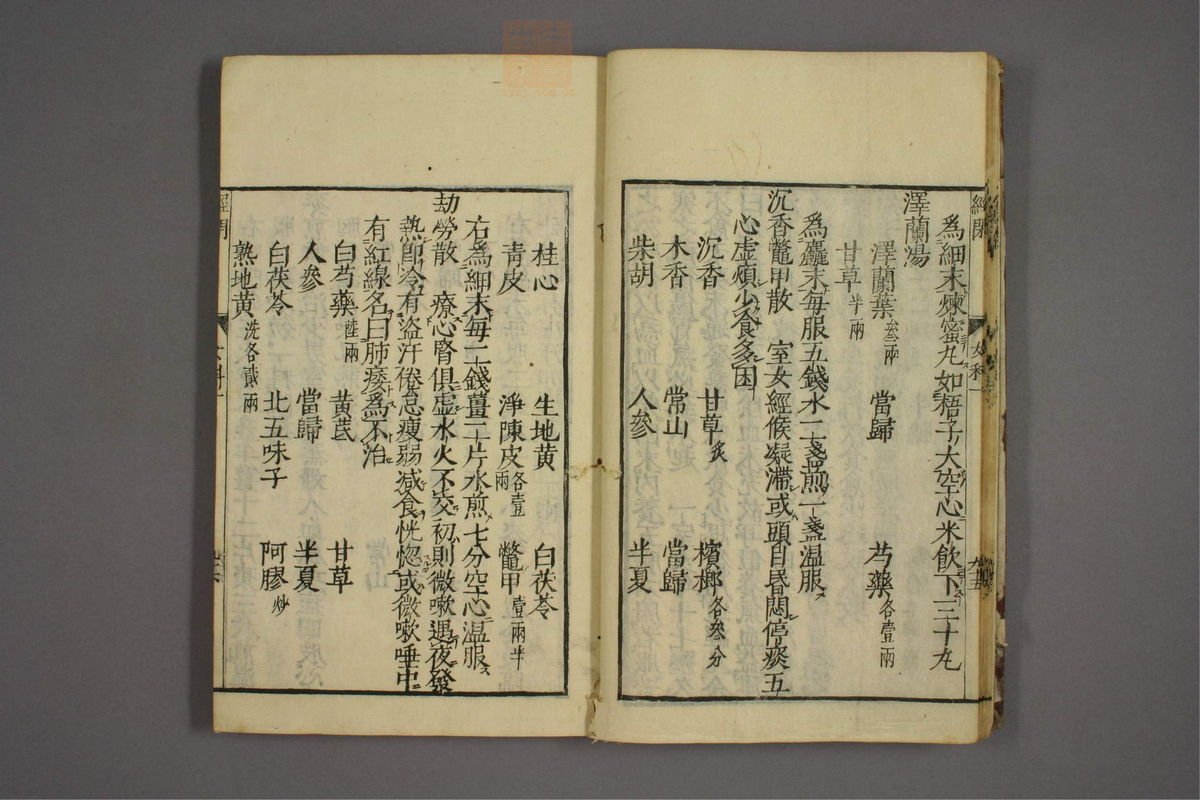 爲細末煉蜜丸如梧子大空心米飲下三十丸
澤蘭湯
澤蘭葉叁兩 當歸 芍藥各壹兩
甘草半兩
爲麤末每服五錢水二盞煎一盞溫服
沉香鼈甲散 室女經候凝滯或頭目昏悶停痰五
心虛煩少食多困
沉香 甘草炙 檳榔各叁分
木香 常山 當歸
柴胡 人參 半夏
桂心 生地黃 白茯苓
靑皮 淨陳皮各壹兩 鼈甲壹兩半
右爲細末每二錢薑二片水煎七分空心溫服
劫勞散 療心腎俱虛水火不交初則微嗽遇夜發
熱卽冷有盜汗倦怠瘦弱减食恍惚或微嗽唾中
有紅線名曰肺痿爲不治
白芍藥陸兩 黃芪 甘草
人參 當歸 半夏
白茯苓 北五味子 阿膠炒
熟地黃洗各貳兩